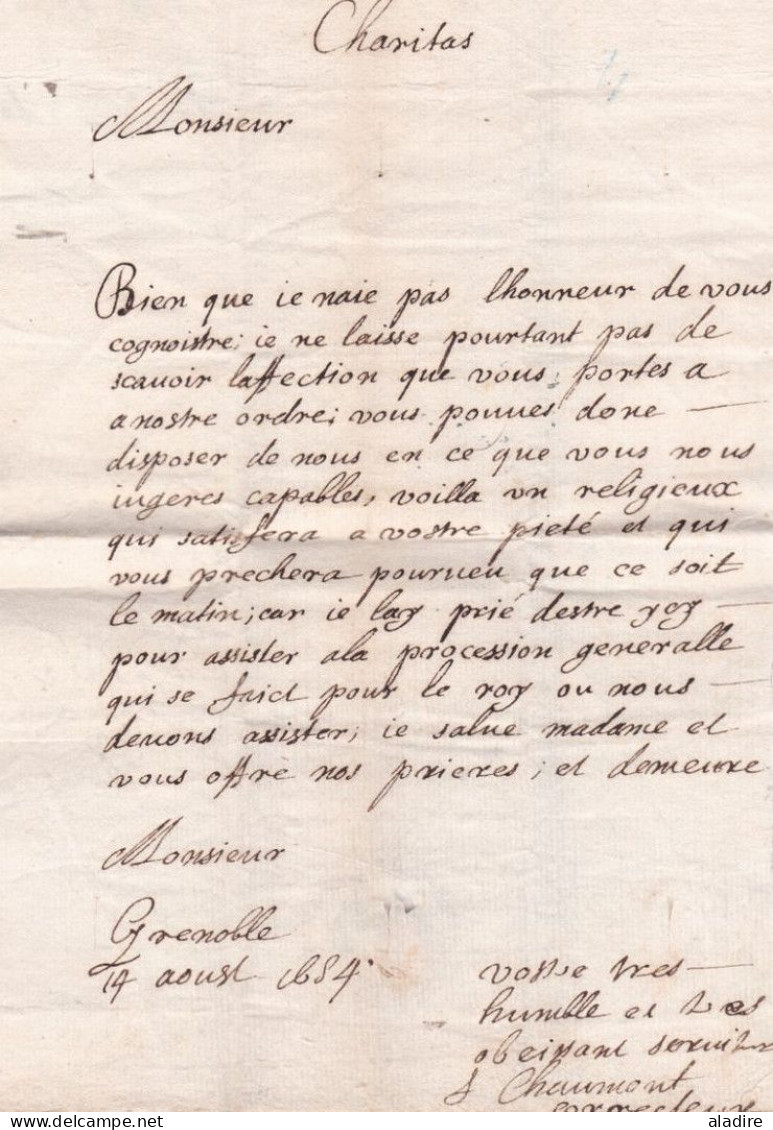 Charitas
Monsieur
Bien que ie naie pas lhonneur de vous
cognoistre; ie ne laisse pourtant pas de
scauoir laffection que vous portes a
a nostre ordre; vous pouues donc —
disposer de nous en ce que vous nous
iugeres capables, voilla un religieux
qui satisfera a vostre pieté et qui
vous prechera pourueu que ce soit
le matin; car ie lay prié destre icy —
pour assister ala procession generalle
qui se faict pour le roy ou nous —
deuons assister; ie salue madame et
vous offre nos prieres; et demeure
Monsieur
Grenoble
14 aoust 1684
vostre tres —
humble et tres
obeissant seruiteur
f Chaumont
correcteur
delcampe.net
aladire